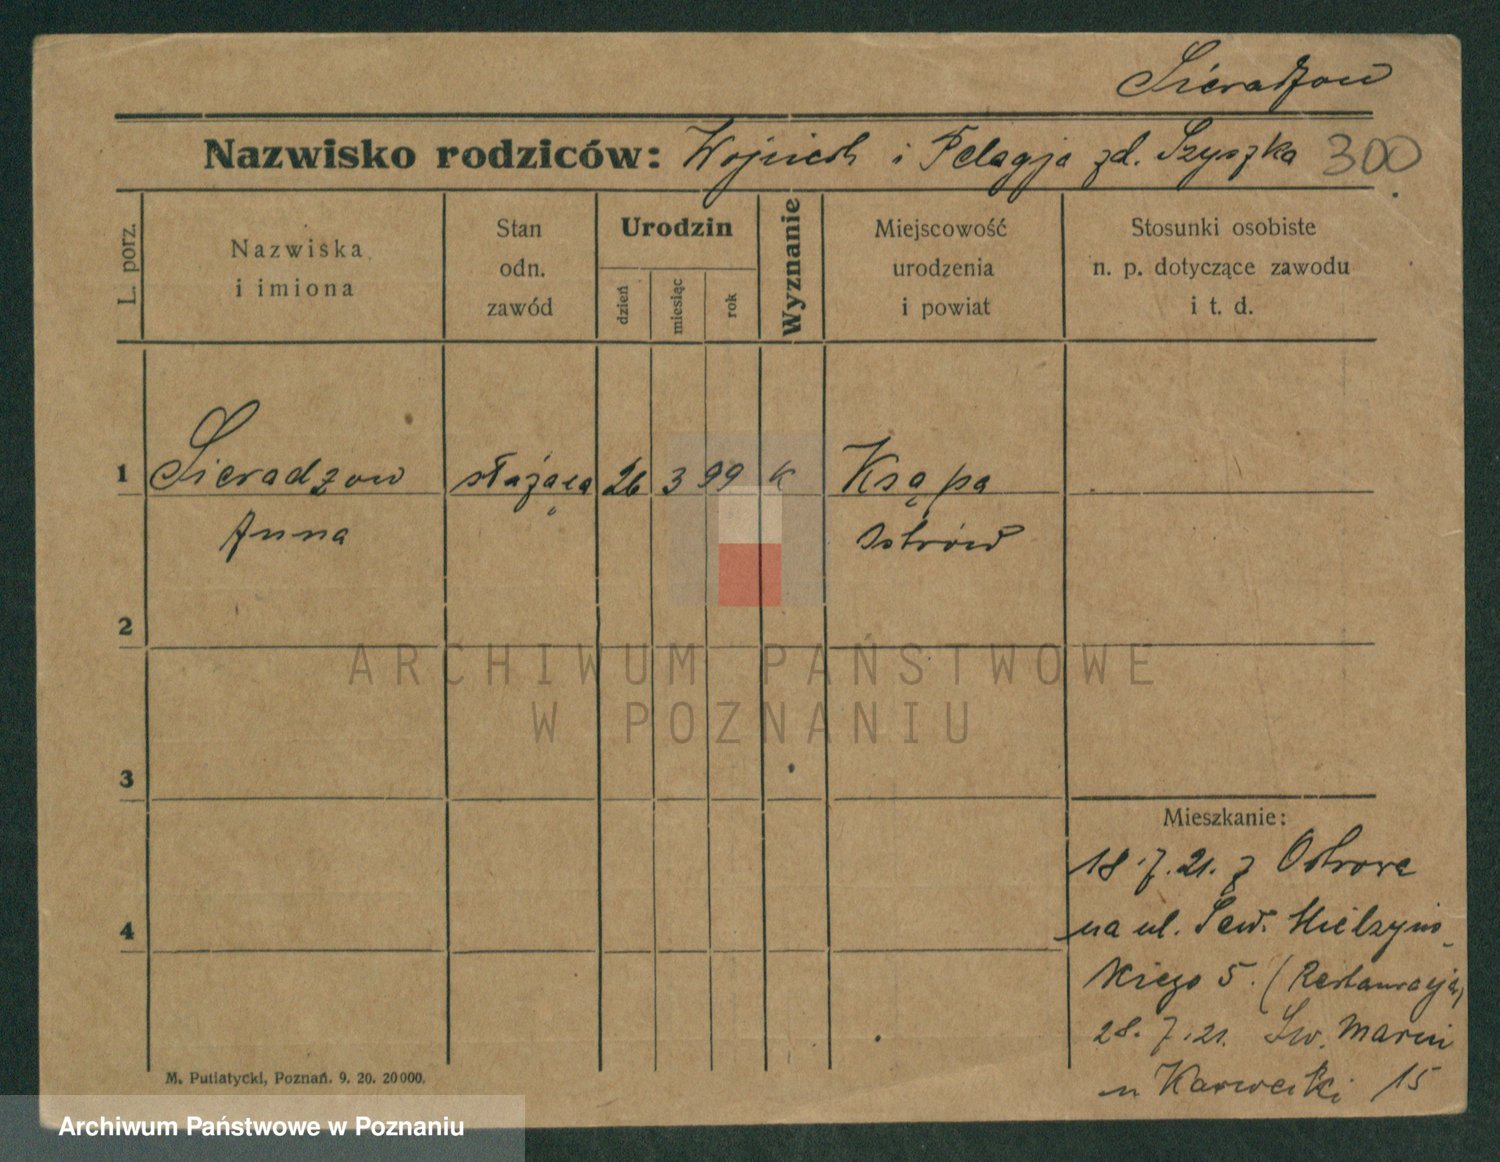 Sieradzon
Nazwisko rodziców: Wojciech i Pelagja zd. Szyszka 300
L. porz.
Nazwiska
i imiona
Stan
odn.
zawód
Urodzin
dzień
miesiąc
rok
Wyznanie
Miejscowość
urodzenia
i powiat
Stosunki osobiste
n. p. dotyczące zawodu
i t. d.
1 Sieradzon służąca 26 3 99 K Ksąpa
Anna Ostrów
2
ARCHIWUM PAŃSTWOWE
W POZNANIU
3
Mieszkanie:
18.7.21. z Ostrowa
4
na ul. Sew. Mielżyńs-
kiego 5. (Restauracja)
28.7.21. Św. Marcin
15
M. Putiatycki, Poznań. 9. 20. 20000.
Archiwum Państwowe w Poznaniu